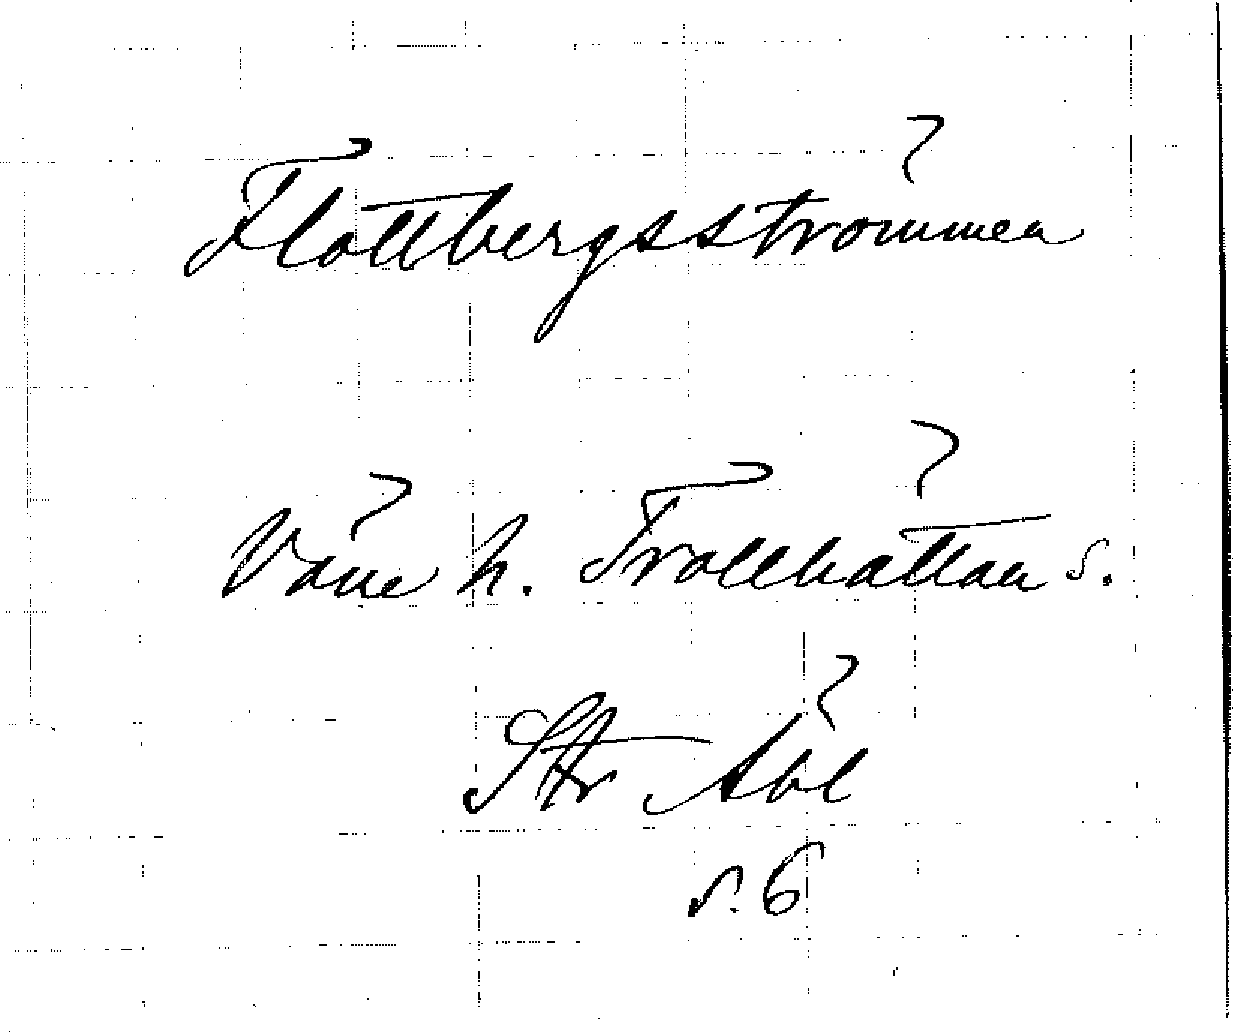 Flottbergsströmmen
Väne h. Trollhättan s.
Str Äbl
s. 6